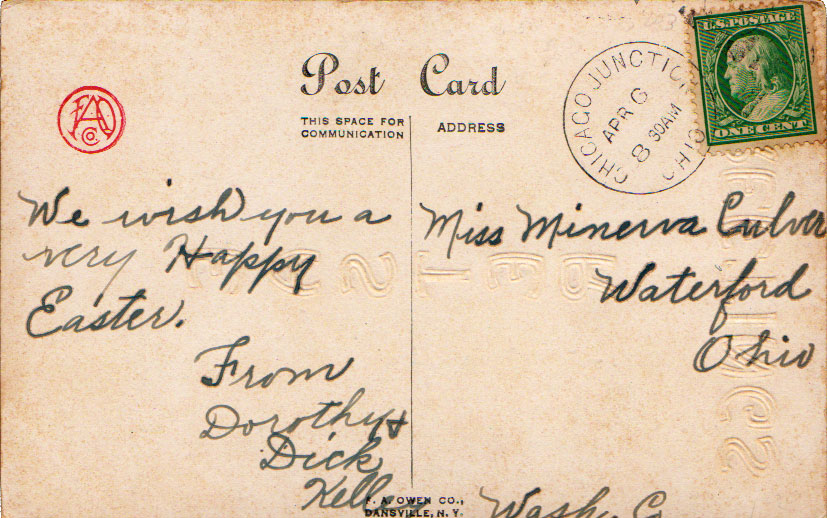 Post Card
THIS SPACE FOR
COMMUNICATION
ADDRESS
FAO
CO.
CHICAGO JUNCTION
APR 6
8 30AM
OHIO
U.S. POSTAGE
ONE CENT
We wish you a
very Happy
Easter.
From
Dorothy &
Dick
Miss Minerva Culver
Waterford
Ohio
Wash. Co
F. A. OWEN CO.,
DANSVILLE, N. Y.